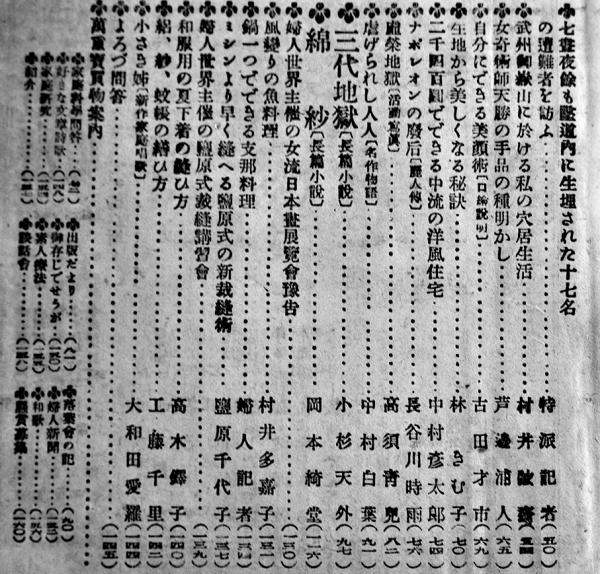 七晝夜餘も隧道内に生埋された十七名
の遭難者を訪ふ 特派記者 (五〇)
武州御嶽山に於ける私の穴居生活 村井
女奇術師天勝の手品の種明かし 芦邊浦人 (六五)
自分にできる美顔術[口繪説明] 古田才市 (六九)
生地から美しくなる秘訣 林きむ子 (七〇)
二千四百圓でできる中流の洋風住宅 中村彦太郎 (七四)
ナポレオンの廢后[麗人傳] 長谷川時雨 (七六)
虚榮地獄[活動寫眞] 高須青兒 (八二)
虐げられし人人[名作物語] 中村白葉 (九一)
三代地獄[長篇小説] 小杉天外 (九七)
綿紗[長篇小説] 岡本綺堂 (一一六)
婦人世界主催の女流日本畫展覽會豫告 (一三〇)
風變りの魚料理 村井多嘉子 (一三二)
鍋一つでできる支那料理 婦人記者 (一三四)
ミシンより早く縫へる鹽原式の新裁縫術 鹽原千代子 (一三七)
婦人世界主催の鹽原式裁縫講習會 (一三九)
和服用の夏下着の縫ひ方 高木鐸子 (一四〇)
絽、紗、蚊帳の繕ひ方 工藤千里 (一四二)
小さき姉[新作家庭唱歌] 大和田愛羅 (一四四)
よろづ問答 (一四五)
萬重寶買物案内
出版だより (八一)
落葉會の記 (九〇)
家庭科學問答
御存じでせうが (一五〇)
婦人新聞
好きな文章詩歌
素人療法
和歌
家庭研究
談話會
懸賞募集 (一六〇)
紹介